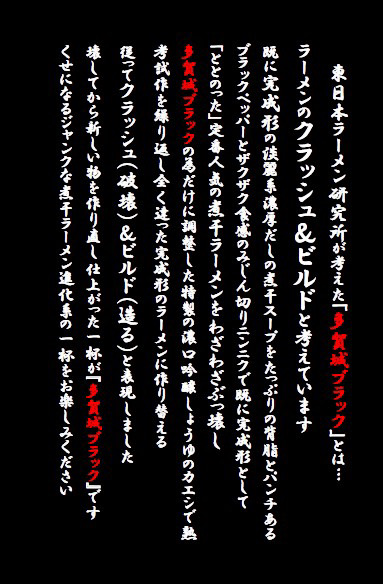 東日本ラーメン研究所が考えた『多賀城ブラック』とは…
ラーメンのクラッシュ&ビルドと考えています
既に完成形の淡麗系濃厚だしの煮干スープをたっぷりの背脂とパンチある
ブラックペッパーとザクザク食感のみじん切りニンニクで既に完成形として
「ととのった」定番人気の煮干ラーメンをわざわざぶっ壊し
多賀城ブラックの為だけに調整した特製の濃口吟醸しょうゆのカエシで熟
考試作を繰り返し全く違った完成形のラーメンに作り替える
従ってクラッシュ(破壊)&ビルド(造る)と表現しました
壊してから新しい物を作り直し仕上がった一杯が『多賀城ブラック』です
くせになるジャンクな煮干ラーメン進化系の一杯をお楽しみください